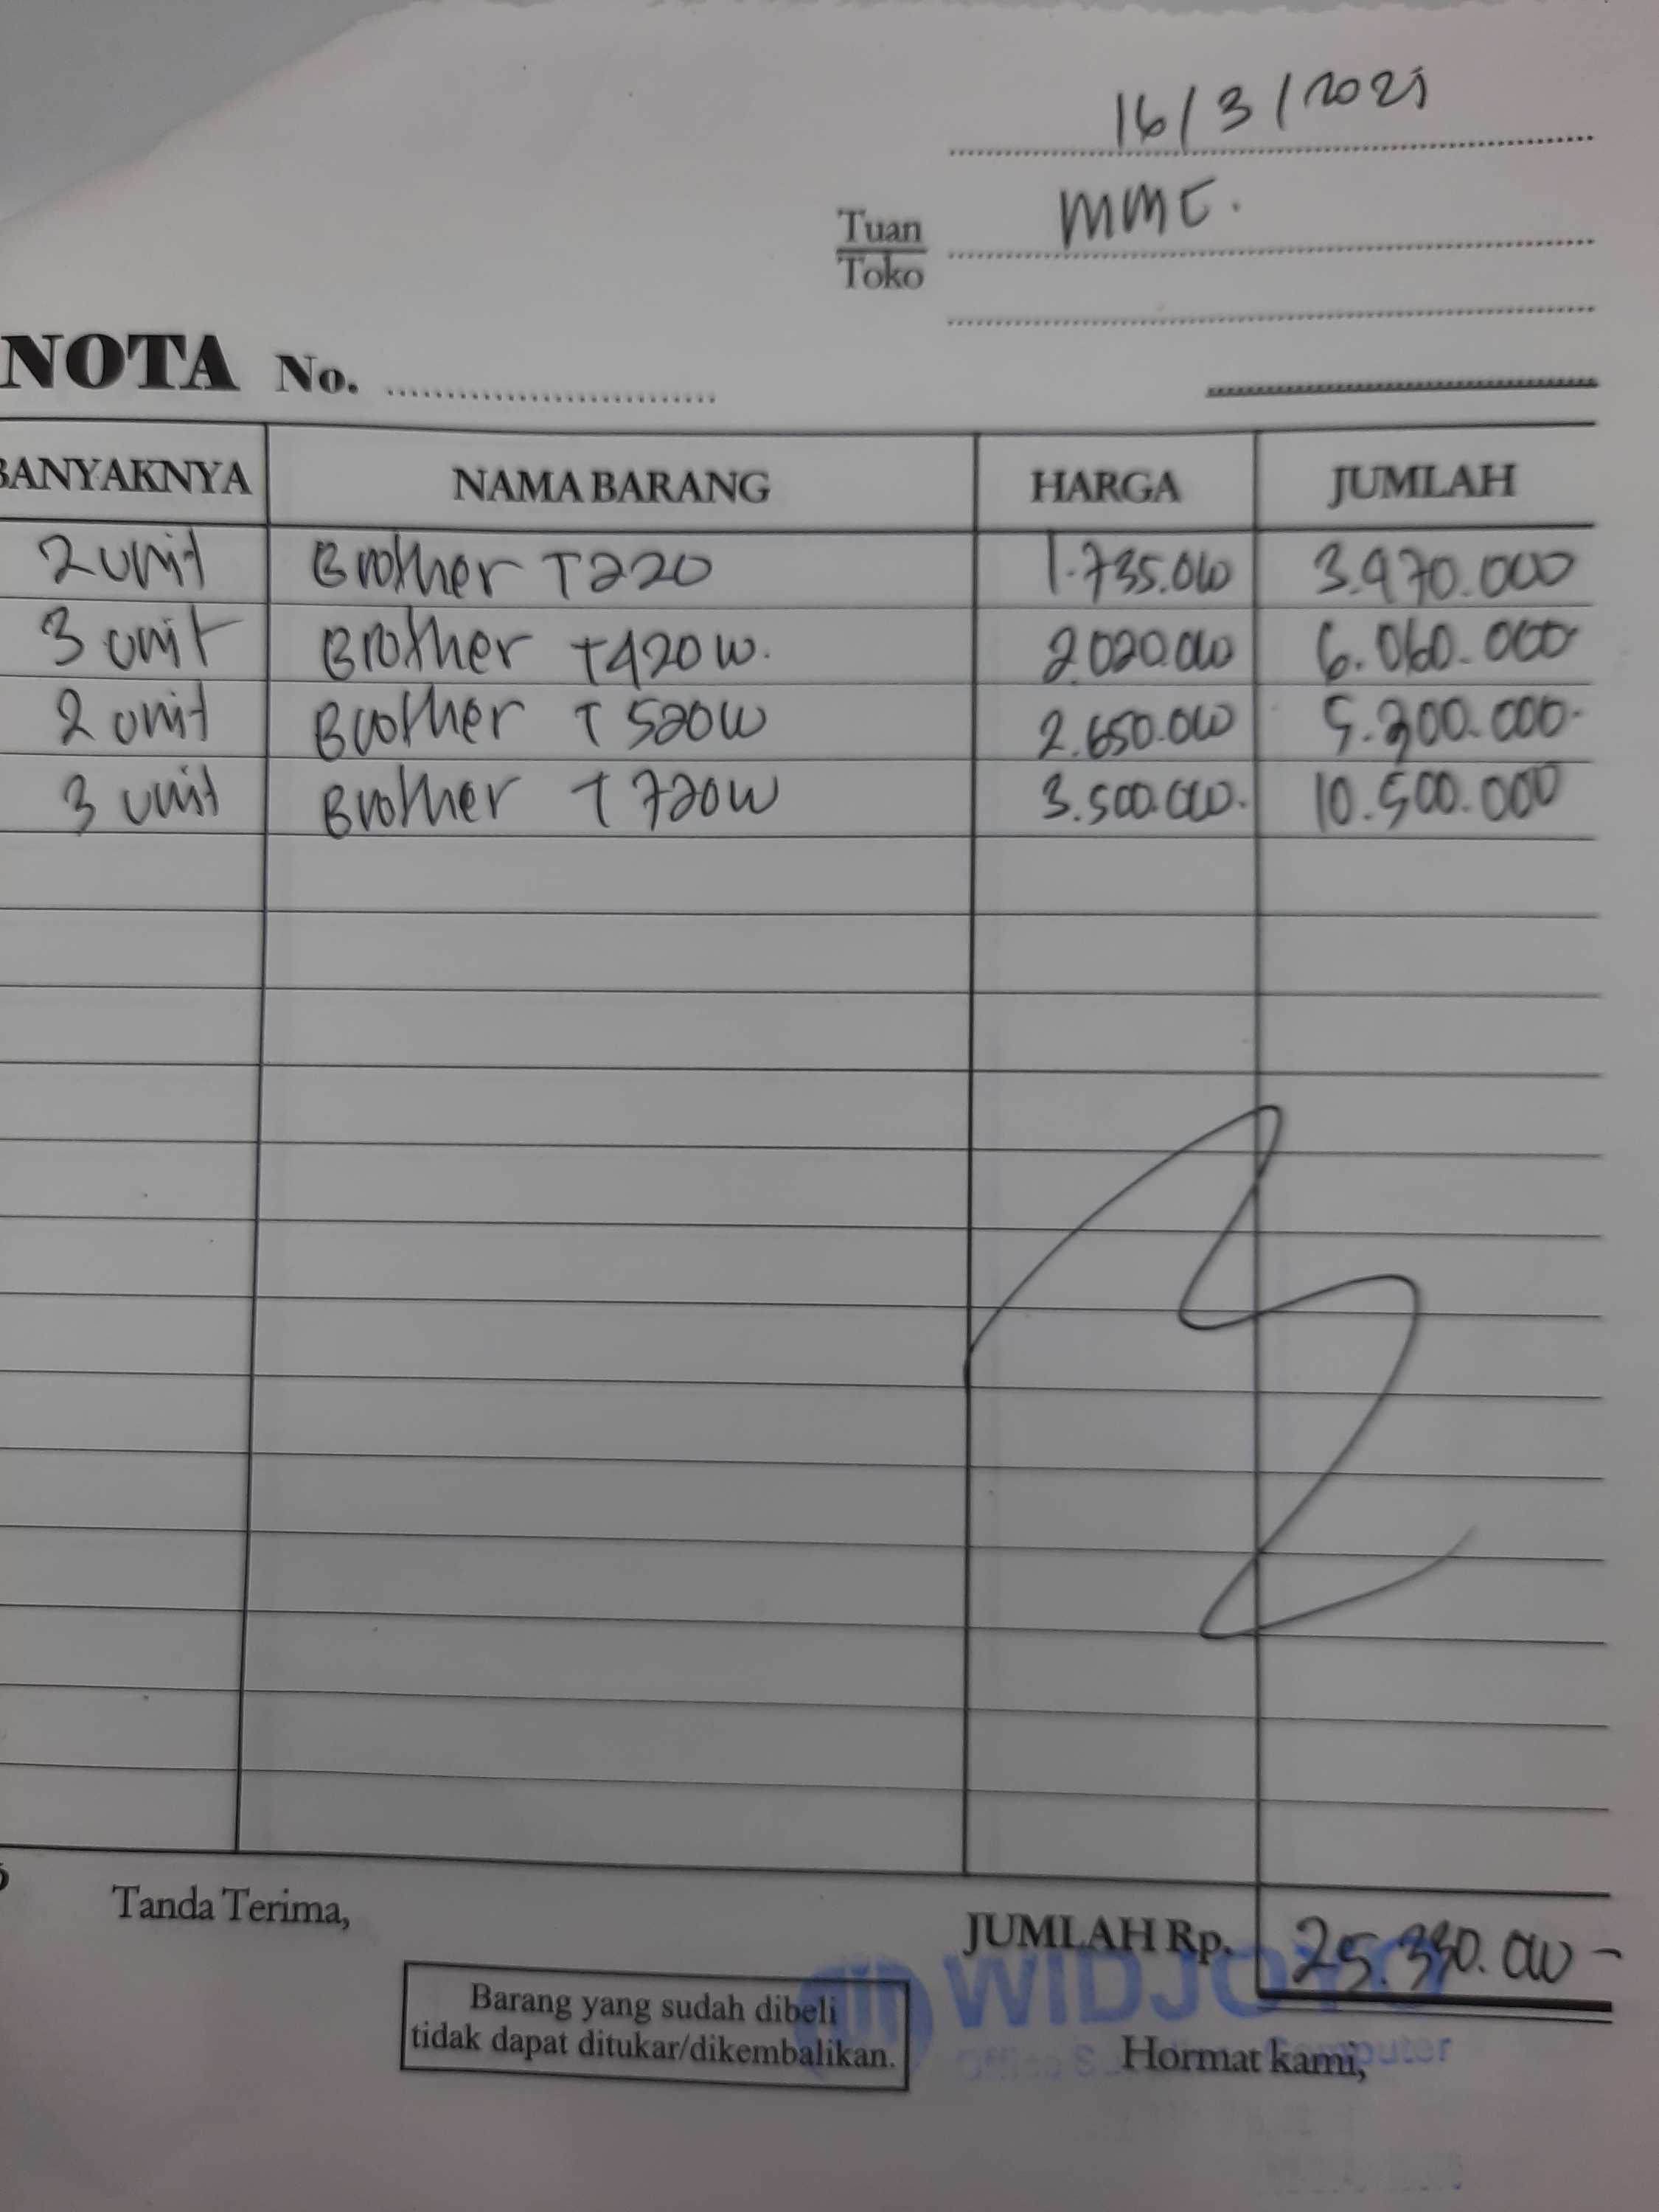 16/3/2021
Tuan
Toko
MMC.
NOTA No.
BANYAKNYA NAMA BARANG HARGA JUMLAH
2 unit Brother T220 1.735.000 3.470.000
3 unit Brother T420W. 2.020.000 6.060.000
2 unit Brother T520W 2.650.000 5.300.000
3 unit Brother T720W 3.500.000. 10.500.000
Tanda Terima,
JUMLAH Rp. 25.330.000 -
Barang yang sudah dibeli
tidak dapat ditukar/dikembalikan.
WIDJOYO
Hormat kami,